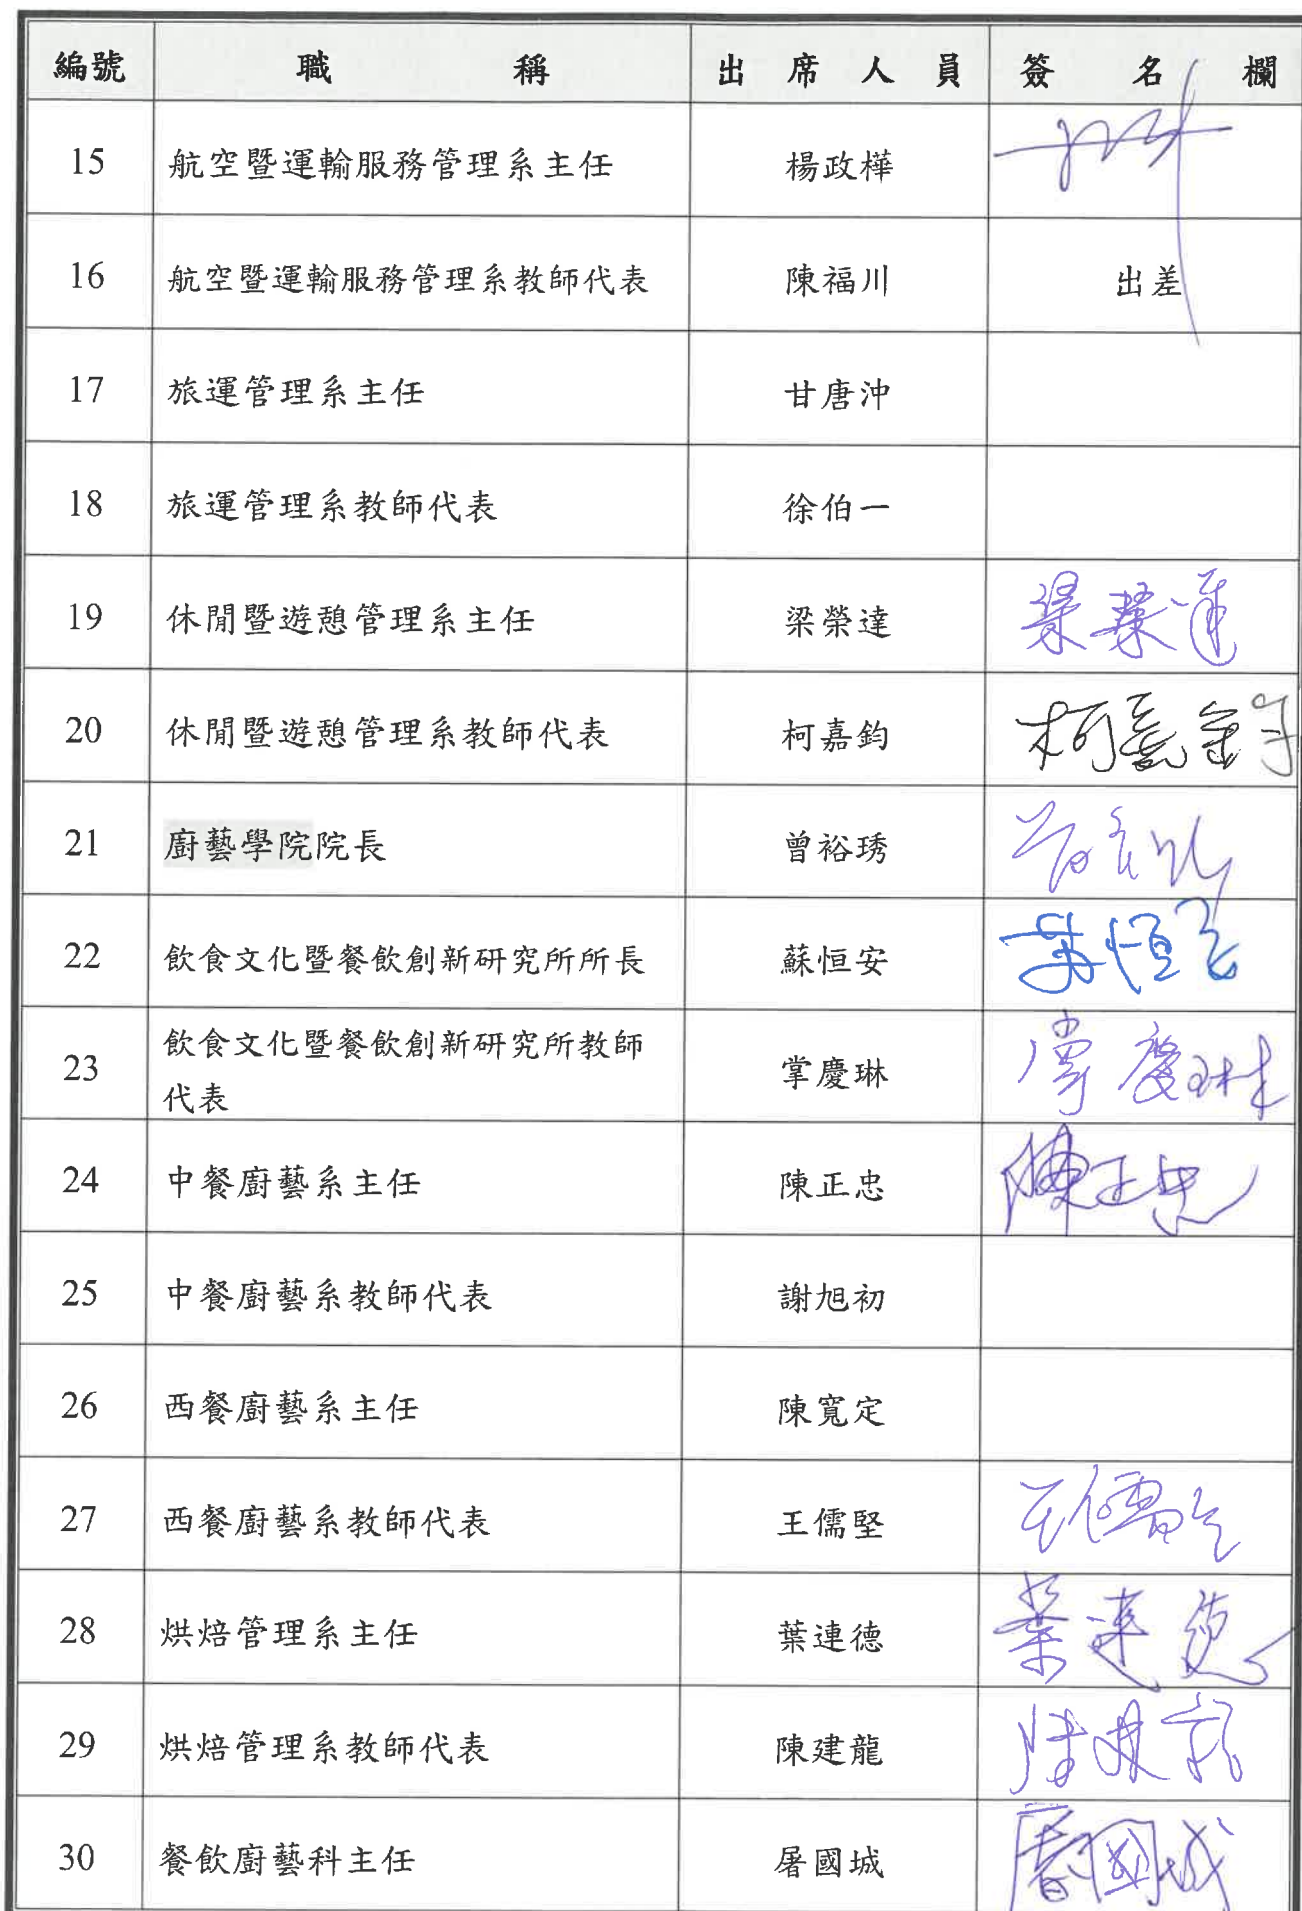 編號 職稱 出席人員 簽名欄
15 航空暨運輸服務管理系主任 楊政樺
16 航空暨運輸服務管理系教師代表 陳福川 出差
17 旅運管理系主任 甘唐沖
18 旅運管理系教師代表 徐伯一
19 休閒暨遊憩管理系主任 梁榮達 梁榮達
20 休閒暨遊憩管理系教師代表 柯嘉鈞 柯嘉鈞
21 廚藝學院院長 曾裕琇
22 飲食文化暨餐飲創新研究所所長 蘇恒安
23 飲食文化暨餐飲創新研究所教師 掌慶琳 掌慶琳
代表
24 中餐廚藝系主任 陳正忠 陳正忠
25 中餐廚藝系教師代表 謝旭初
26 西餐廚藝系主任 陳寬定
27 西餐廚藝系教師代表 王儒堅 王儒堅
28 烘焙管理系主任 葉連德 葉連德
29 烘焙管理系教師代表 陳建龍 陳建龍
30 餐飲廚藝科主任 屠國城 屠國城